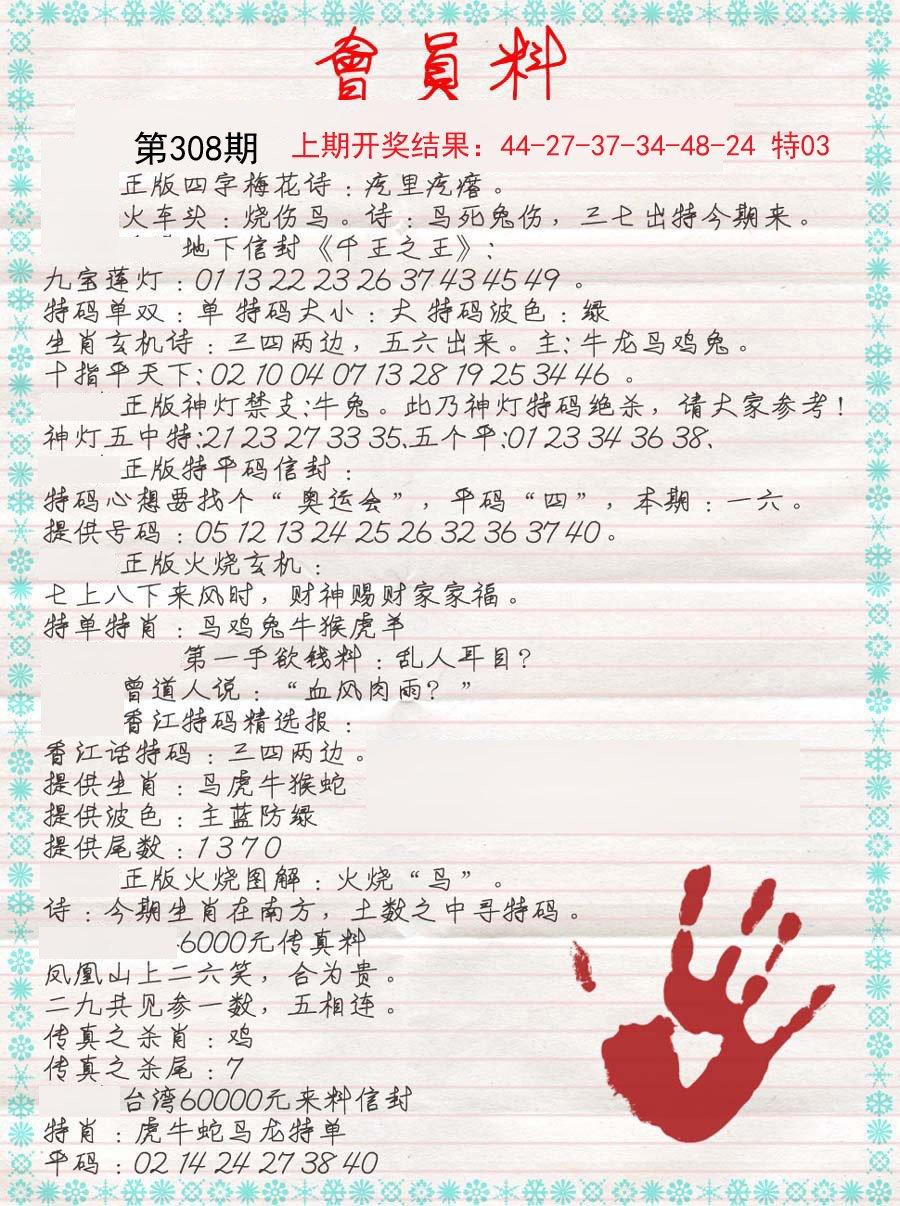 會員料
第308期 上期开奖结果：44-27-37-34-48-24 特03
正版四字梅花诗：疙里疙瘩。
火车头：烧伤鸟。诗：鸟死兔伤，三七出特今期来。
地下信封《千王之王》：
九宝莲灯：01 13 22 23 26 37 43 45 49 。
特码单双：单 特码大小：大 特码波色：绿
生肖玄机诗：三四两边，五六出来。主：牛龙鸟鸡兔。
十指平天下：02 10 04 07 13 28 19 25 34 46 。
正版神灯禁支：牛兔。此乃神灯特码绝杀，请大家参考！
神灯五中特：21 23 27 33 35、五个平：01 23 34 36 38、
正版特平码信封：
特码心想要找个“奥运会”，平码“四”，本期：一六。
提供号码：05 12 13 24 25 26 32 36 37 40。
正版火烧玄机：
七上八下来风时，财神赐财家家福。
特单特肖：鸟鸡兔牛猴虎羊
第一手欲钱料：乱人耳目？
曾道人说：“血风肉雨？”
香江特码精选报：
香江话特码：三四两边。
提供生肖：鸟虎牛猴蛇
提供波色：主蓝防绿
提供尾数：1 3 7 0
正版火烧图解：火烧“鸟”。
诗：今期生肖在南方，土数之中寻特码。
6000元传真料
凤凰山上二六笑，合为贵。
二九共见参一数，五相连。
传真之杀肖：鸡
传真之杀尾：7
台湾60000元来料信封
特肖：虎牛蛇鸟龙特单
平码：02 14 24 27 38 40